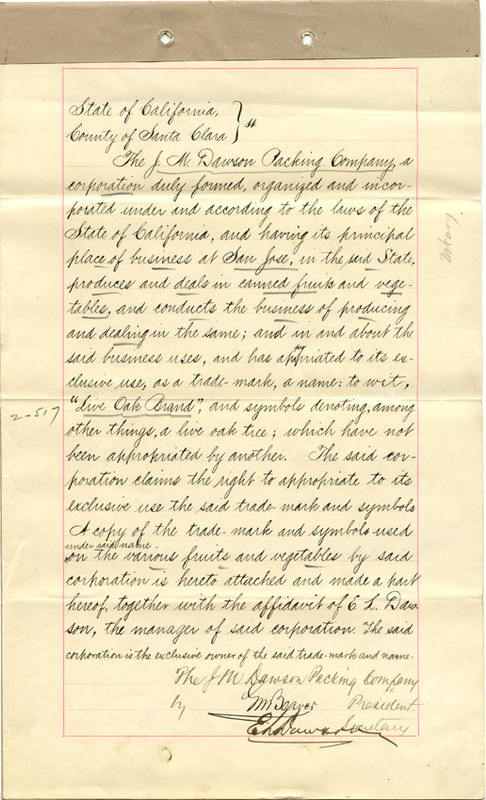 State of California,
County of Santa Clara } ss
The J. M. Dawson Packing Company, a
corporation duly formed, organized and incor-
porated under and according to the laws of the
State of California, and having its principal
place of business at San Jose, in the said State,
produces and deals in canned fruits and vege-
tables, and conducts the business of producing
and dealing in the same; and in and about the
said business uses, and has appropriated to its ex-
clusive use, as a trade-mark, a name: to wit,
"Live Oak Brand", and symbols denoting, among
other things, a live oak tree; which have not
been appropriated by another. The said cor-
poration claims the right to appropriate to its
exclusive use the said trade-mark and symbols
A copy of the trade-mark and symbols used
under said name:
on the various fruits and vegetables by said
corporation is hereto attached and made a part
hereof, together with the affidavit of E. L. Daw-
son, the manager of said corporation. The said
corporation is the exclusive owner of the said trade-mark and name.
The J M Dawson Packing Company
by President
Secretary
Notary
2-517